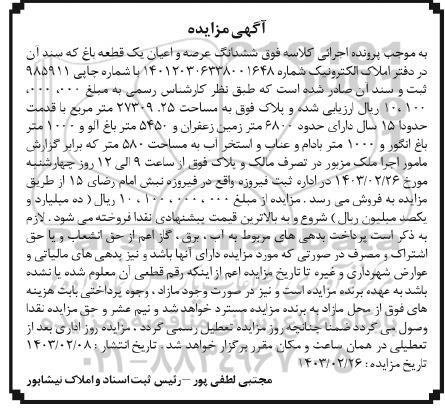 آگهی مزایده
به موجب پرونده اجرائی کلاسه فوق ششدانگ عرصه و اعیان یک قطعه باغ که سند آن
در دفتر املاک الکترونیک شماره ۱۴۰۱۲۰۳۰۶۳۳۸۰۰۱۶۴۸ با شماره چاپی ۹۸۵۹۱۱
ثبت و سند آن صادر شده است که طبق نظر کارشناس رسمی به مبلغ ۰۰۰, ۰۰۰,
۱۰,۱۰۰ ریال ارزیابی شده و پلاک فوق به مساحت ۲۷۳۰۹.۲۵ متر مربع با قدمت
حدودا ۱۵ سال دارای حدود ۶۸۰۰ متر زمین زعفران و ۵۴۵۰ متر باغ الو و ۱۰۰۰ متر
باغ انگور و ۱۰۰۰ متر بادام و عناب و استخر آب به مساحت ۵۸۰ متر که برابر گزارش
مامور اجرا ملک مزبور در تصرف مالک و پلاک فوق از ساعت ۹ الی ۱۲ روز چهارشنبه
مورخ ۱۴۰۳/۰۲/۲۶ در اداره ثبت فیروزه واقع در فیروزه نبش امام رضای ۱۵ از طریق
مزایده به فروش می رسد . مزایده از مبلغ ۱۰,۱۰۰,۰۰۰,۰۰۰ ریال ( ده میلیارد و
یکصد میلیون ریال ) شروع و به بالاترین قیمت پیشنهادی نقدا فروخته می شود . لازم
به ذکر است پرداخت بدهی های مربوط به آب ، برق ، گاز اعم از حق انشعاب و یا حق
اشتراک و مصرف در صورتی که مورد مزایده دارای آنها باشد و نیز بدهی های مالیاتی و
عوارض شهرداری و غیره تا تاریخ مزایده اعم از اینکه رقم قطعی آن معلوم شده یا نشده
باشد به عهده برنده مزایده است و نیز در صورت وجود مازاد ، وجوه پرداختی بابت هزینه
های فوق از محل مازاد به برنده مزایده مسترد خواهد شد و نیم عشر و حق مزایده نقدا
وصول می گردد ضمنا چنانچه روز مزایده تعطیل رسمی گردد ، مزایده روز اداری بعد از
تعطیلی در همان ساعت و مکان مقرر برگزار خواهد شد . تاریخ انتشار : ۱۴۰۳/۰۲/۰۸
تاریخ مزایده : ۱۴۰۳/۰۲/۲۶
مجتبی لطفی پور – رئیس ثبت اسناد و املاک نیشابور